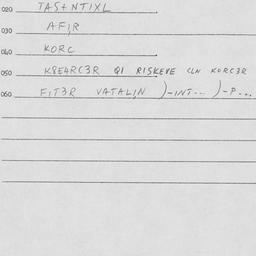 020 TAS+NTIXL
030 AF;R
040 KORC
050 K8E4RC3R QI RISKEVE CLN KORC3R
060 F;T3R VATAL;N )-INT... )-P...